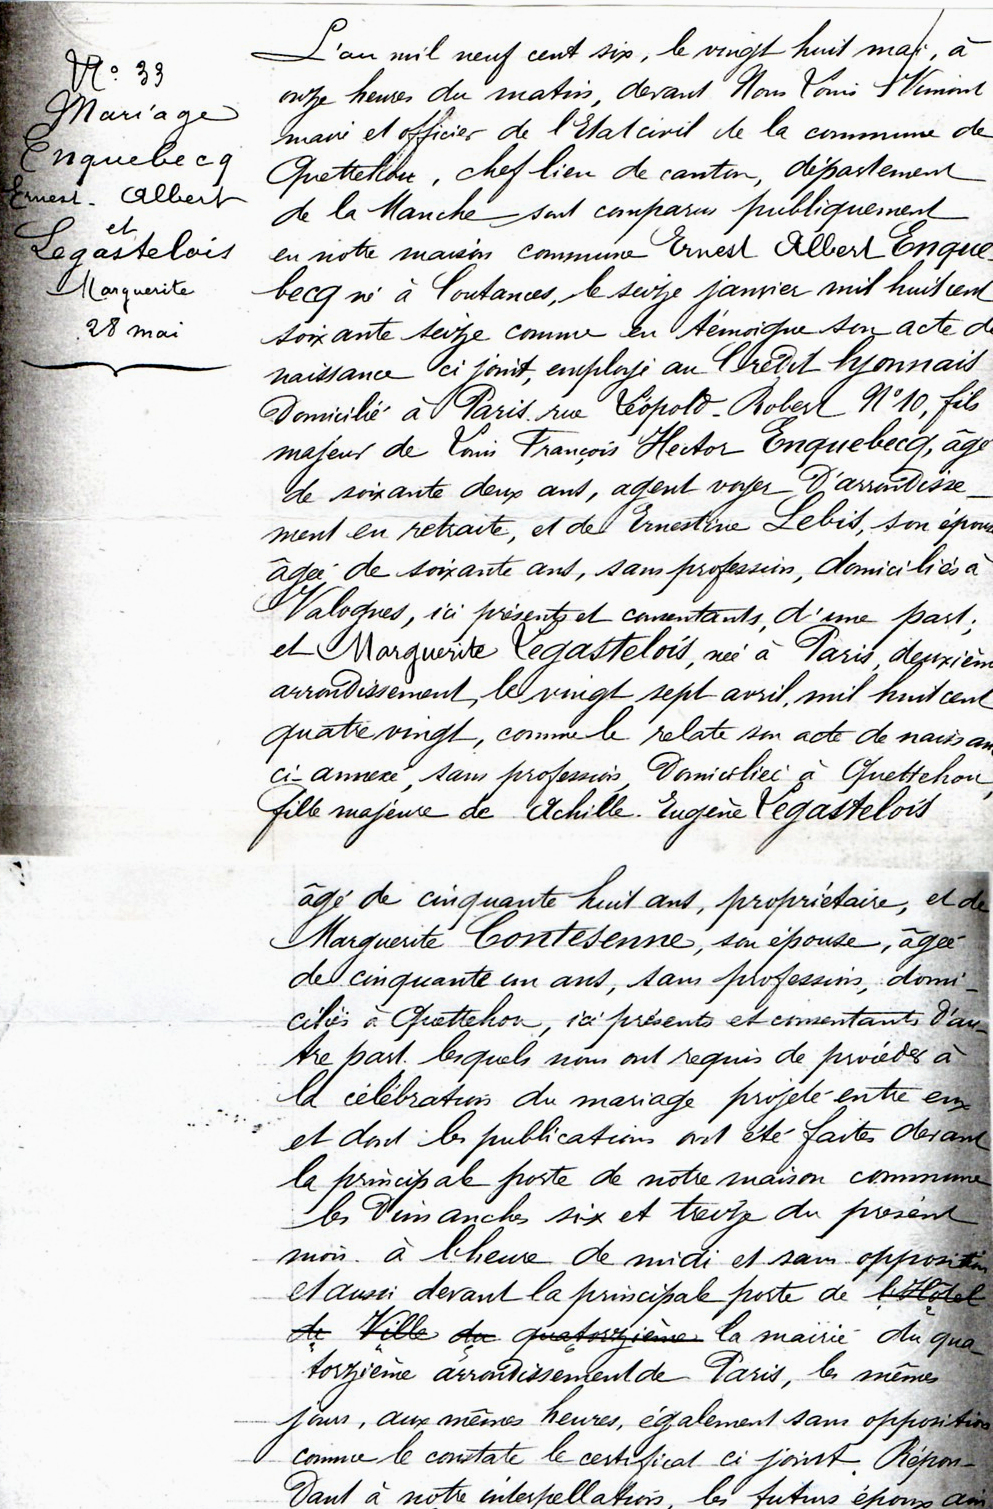 N° 33
Mariage
Enquebecq
Ernest-Albert
et
Legastelois
Marguerite
28 mai
L'an mil neuf cent six, le vingt huit mai, à
onze heures du matin, devant Nous Louis
maire et officier de l'Etat civil de la commune de
Quettehou, chef lieu de canton, département
de la Manche sont comparus publiquement
en notre maison commune Ernest Albert Enque-
becq né à Coutances, le seize janvier mil huit cent
soixante seize comme en témoigne son acte de
naissance ci joint, employé au Crédit lyonnais
Domicilié à Paris rue Léopold-Robert N° 10, fils
majeur de Louis François Hector Enquebecq, âgé
de soixante deux ans, agent voyer D'arrondisse-
ment en retraite, et de Ernestine Lebis, son épouse
âgée de soixante ans, sans profession, domiciliés à
Valognes, ici présents et consentants, d'une part;
et Marguerite Legastelois, née à Paris, deuxième
arrondissement, le vingt sept avril, mil huit cent
quatre vingt, comme le relate son acte de naissan
ci-annexé, sans profession, Domiciliée à Quettehou,
fille majeure de Achille-Eugène Legastelois
âgé de cinquante huit ans, propriétaire, et de
Marguerite Contesenne, son épouse, âgée
de cinquante un ans, sans profession, domi-
ciliés à Quettehou, ici présents et consentants D'au-
tre part. lesquels nous ont requis de procéder à
la célébration du mariage projeté entre eux
et dont les publications ont été faites devant
la principale porte de notre maison commune
les Dimanches six et treize du présent
mois. à l'heure de midi et sans opposition
et aussi devant la principale porte de l'Hôtel
de Ville du quatorzième la mairie du qua-
torzième arrondissement de Paris, les mêmes
jours, aux mêmes heures, également sans opposition
comme le constate le certificat ci joint. Répon-
Dant à notre interpellation, les futurs époux